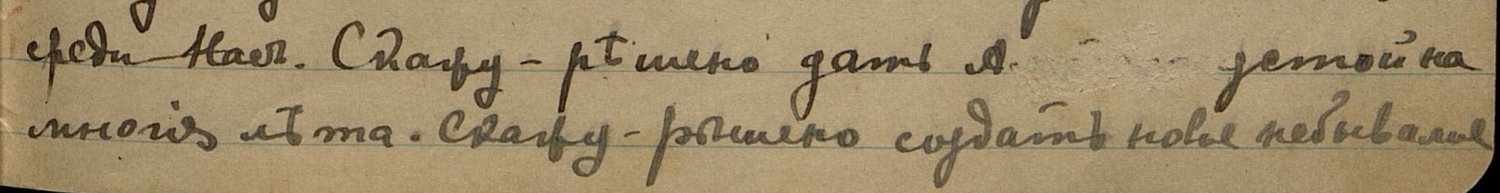 среди Нась. Скажу - рѣшено дать А. устой на
многія лѣта. Скажу - рѣшено создать новое небывалое